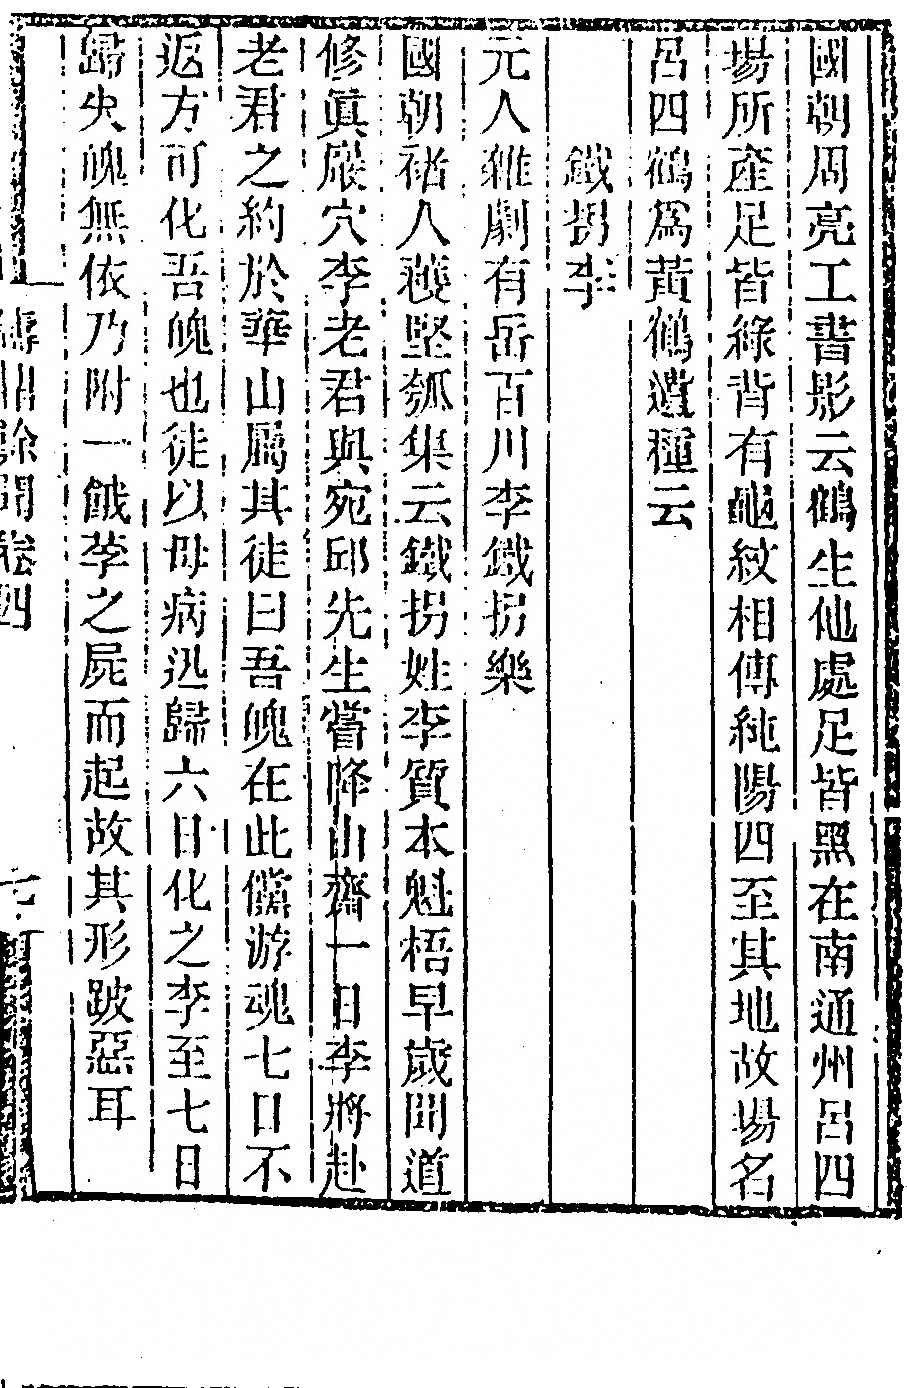 國朝周亮工書影云鶴生他處足皆黑在南通州呂四
場所產足皆綠背有龜紋相傳純陽四至其地故場名
呂四鶴爲黃鶴遺種云
鐵拐李
元人雜劇有岳百川李鐵拐樂
國朝褚人穫堅瓠集云鐵拐姓李質本魁梧早歲聞道
修眞巖穴李老君與宛邱先生嘗降山齋一日李將赴
老君之約於華山屬其徒曰吾魄在此儻游魂七日不
返方可化吾魄也徒以母病迅歸六日化之李至七日
歸失魄無依乃附一餓莩之屍而起故其形跛惡耳
卷四